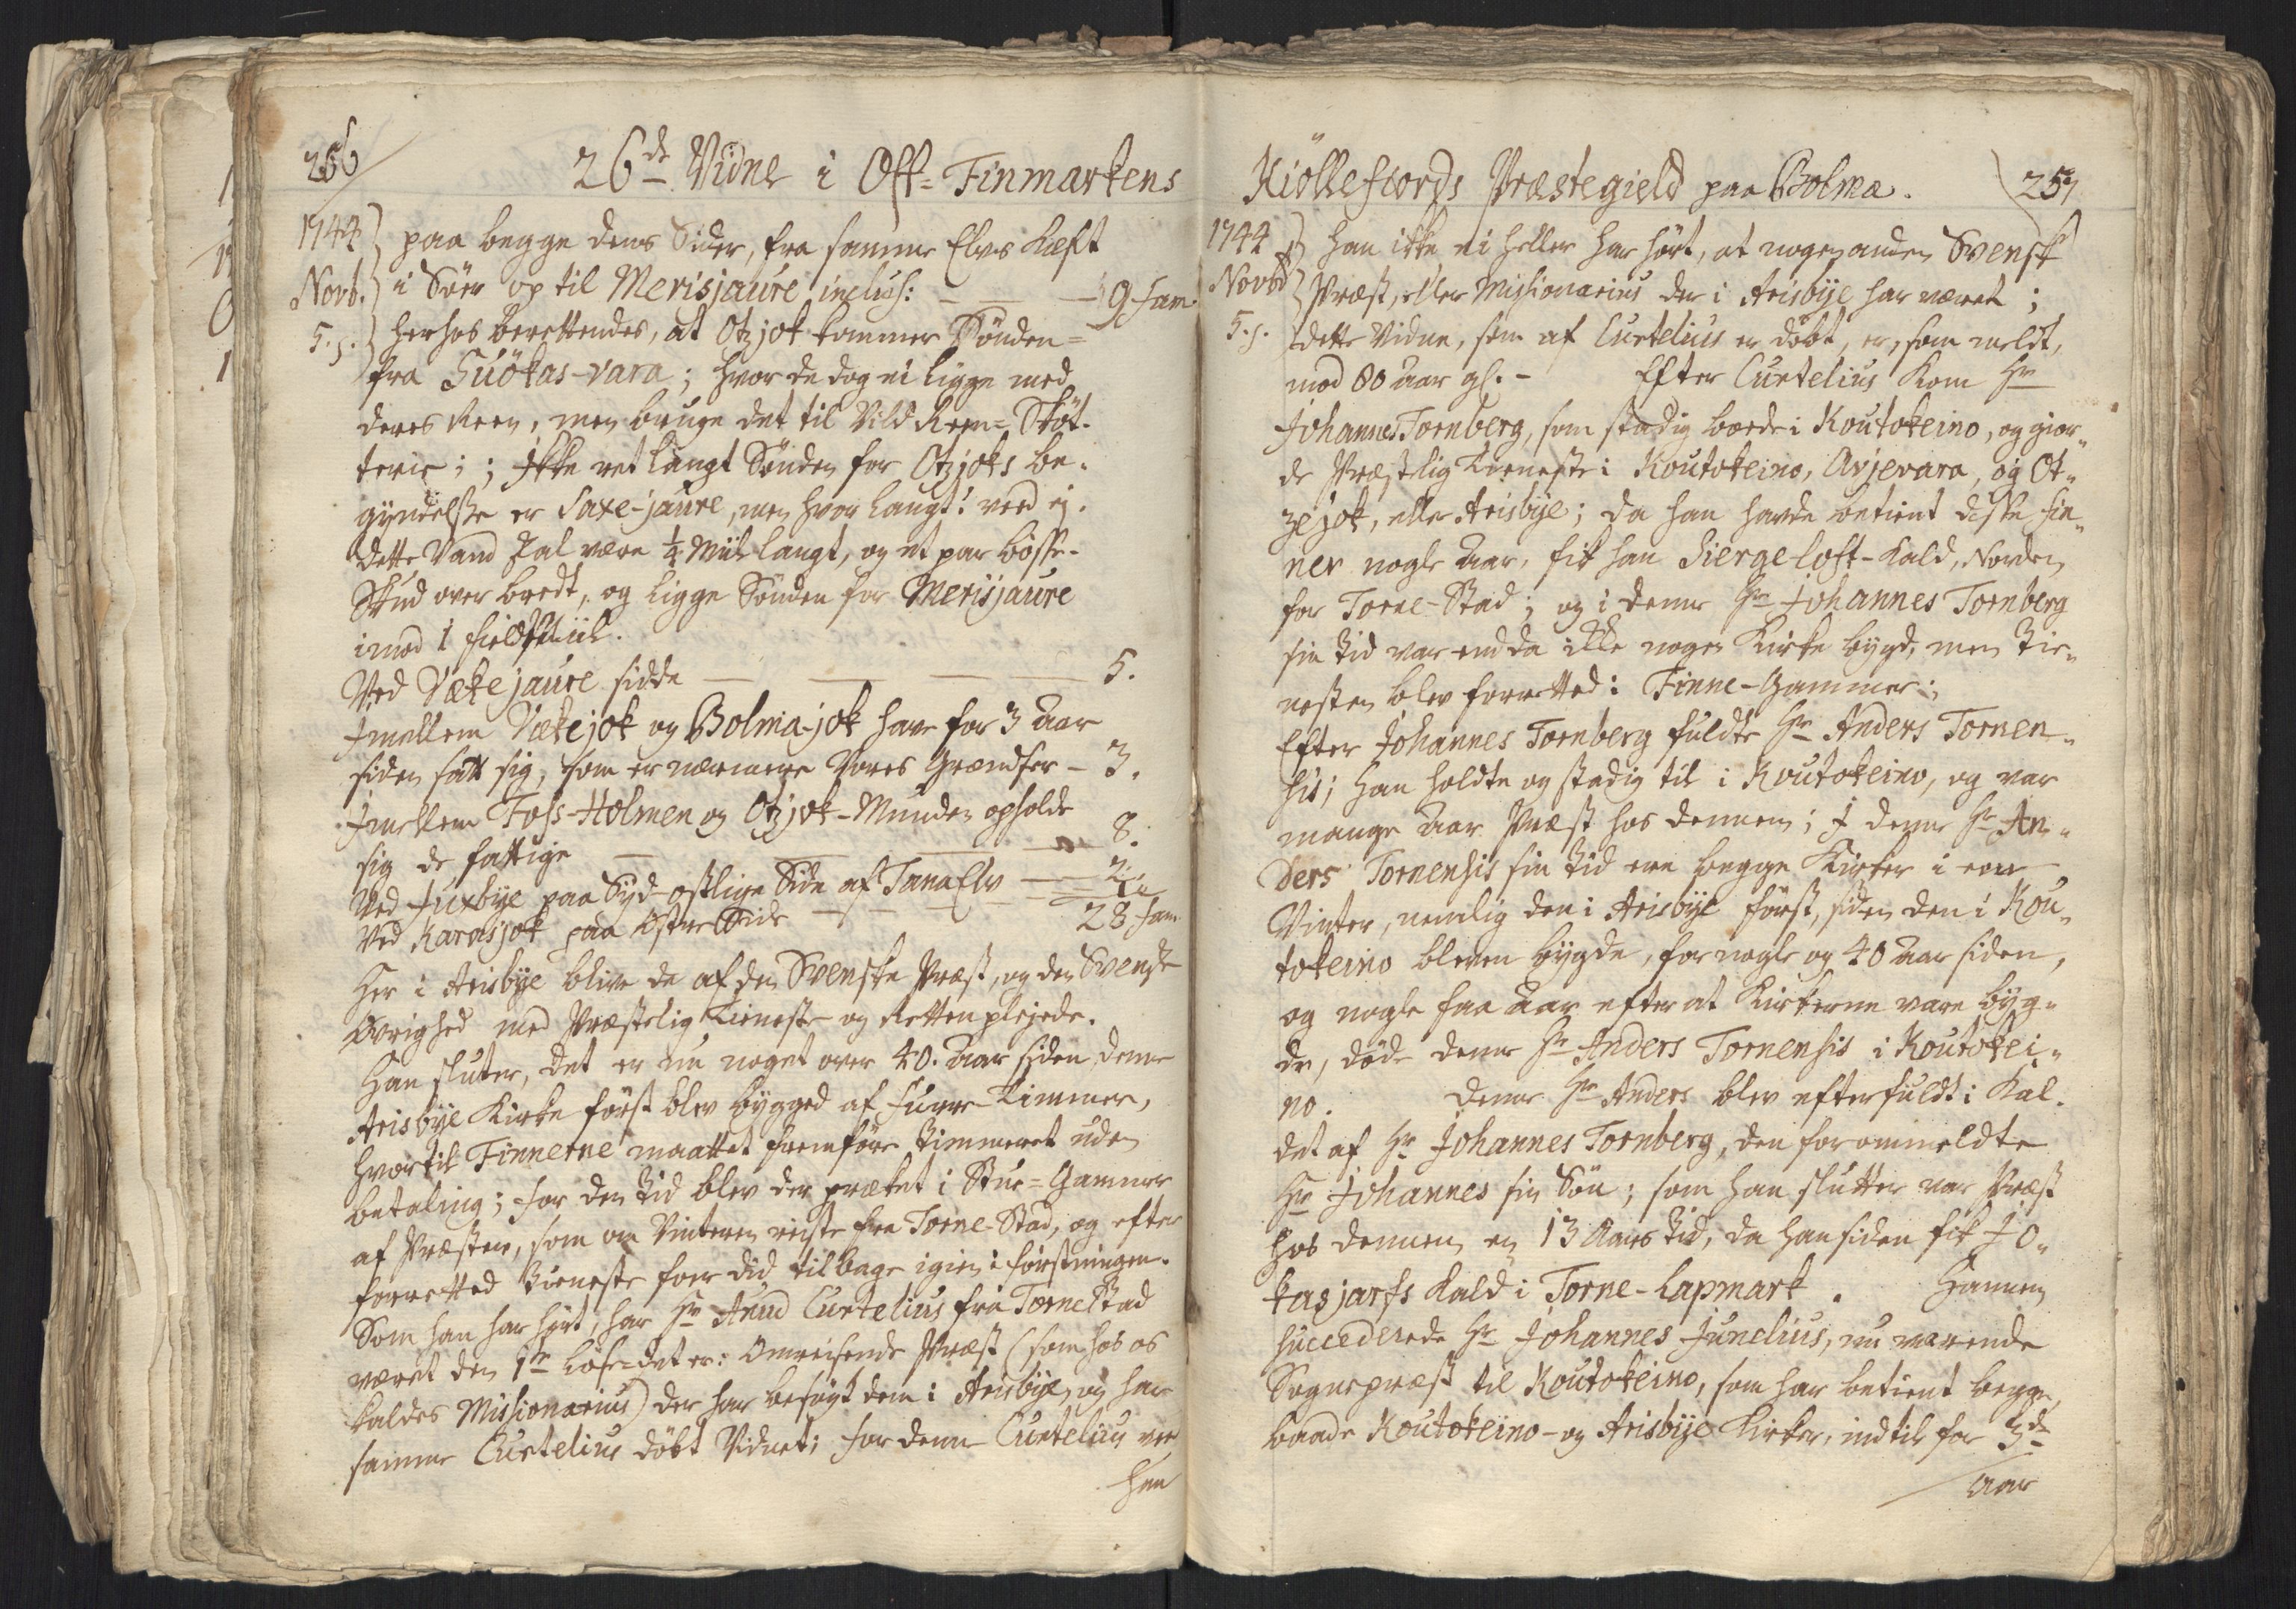 256
26de Vidne i Ost-Finmarkens
1744 paa begge dens Sider, fra samme Elvs Kæft
Novb. i Søer op til Merisjaure inclus: — — 9 fam
5. s. herhos berettendes, at Otzjok kommer Sønden-
fra Suökas-vara; hvor de dog ei ligge med
deres Reen, men bruge det til Vild Reen-Skøt-
terie; ; Ikke ret langt Sønden for Otzjoks be-
gyndelse er Saxe-jaure, men hvor langt? veed ej.
dette Vand skal være ¼ Miil langt, og et par bösse-
Skud over bredt, og ligge Sönden for Merisjaure
imod 1 field Miil.
Ved Vækejaure sidde — — — — 5.
Imellem Vækejok og Bolma-jok have for 3 Aar
siden satt sig, som er nærmere Vores Grændser — 3.
Imellem Foss-Holmen og Otzjok-Munden opholde
sig de fattige — — — — 8.
Ved Juxbye paa Syd-ostlige Side af Tana Elv — 2
Ved Karasjok paa Östre Side — — — 1
28 fam
Her i Arisbye blive de af den Svenske Præst, og den Svenske
Øvrighed med Præstelig Tieneste og Retten plejede.
Han slutter, det er nu noget over 40. Aar siden denne
Arisbye Kirke först blev bygged af Furre-Timmer,
hvortil Finnerne maattet fremföre Timmeret uden
betaling; for den Tid blev der præket i Stue-Gammer
af Præsten, som om Vinteren reiste fra Torne-Stad, og efter
forretted Tieneste foer did tilbage igien i förstningen.
Som han har hört, har Hr Anund Curtelius fra Torne Stad
været den 1ste Löse- det er: Omreisende Præst (som hos os
kaldes Missionarius) der har besögt dem i Arisbye, og har
samme Curtelius döbt Vidnet; for denne Curtelius veed
han
Kiöllefiords Præstegield paa Bolma. 257
1744 han ikke ei heller har hört, at nogen anden Svensk
Novbr Præst, eller Missionarius der i Arisbye har været;
5. s. dette Vidne, som af Curtelius er döbt, er, som meldt,
mod 80 aar gl. - Efter Curtelius Kom Hr
Johannes Tornberg, som stadig boede i Koutokeino, og gior-
de Præstelig Tieneste i Koutokeino, Avjevara, og Ot-
zejok, eller Arisbye; da han havde betient disse Fin-
ner nogle Aar, fik han Sierge-loft-Kald, Norden
for Torne-Stad; og i denne Hr Johannes Tornberg
sin Tid var endda ikke nogen Kirke bygd, men Tie-
nesten blev forretted i Finne-Gammer;
Efter Johannes Tornberg fuldte Hr Anders Tornen-
sis; han holdte og stadig til i Koutokeino, og var
mange Aar Præst hos dennem; I denne Hr An-
ders Tornensis sin Tid ere begge Kirker i een
Vinter, nemlig den i Arisbye först, siden den i Kou-
tokeino bleven bygde, for nogle og 40 Aar siden,
og nogle faa Aar efter at Kirkerne vare byg-
de, döde denne Hr Anders Tornensis i Koutokei-
no. Denne Hr Anders blev efterfuldt i Kal-
det af Hr Johannes Tornberg, den forommeldte
Hr Johannes sin Sön; som han slutter var Præst
hos dennem en 13 Aars Tid, da han siden fik Jo-
kasjarfs Kald i Torne-Lapmark. Hannem
succederede Hr Johannes Junelius, nu værende
Sognepræst til Koutokeino, som har betient begge,
baade Koutokeino- og Arisbye Kirker, indtil for 3de
Aar